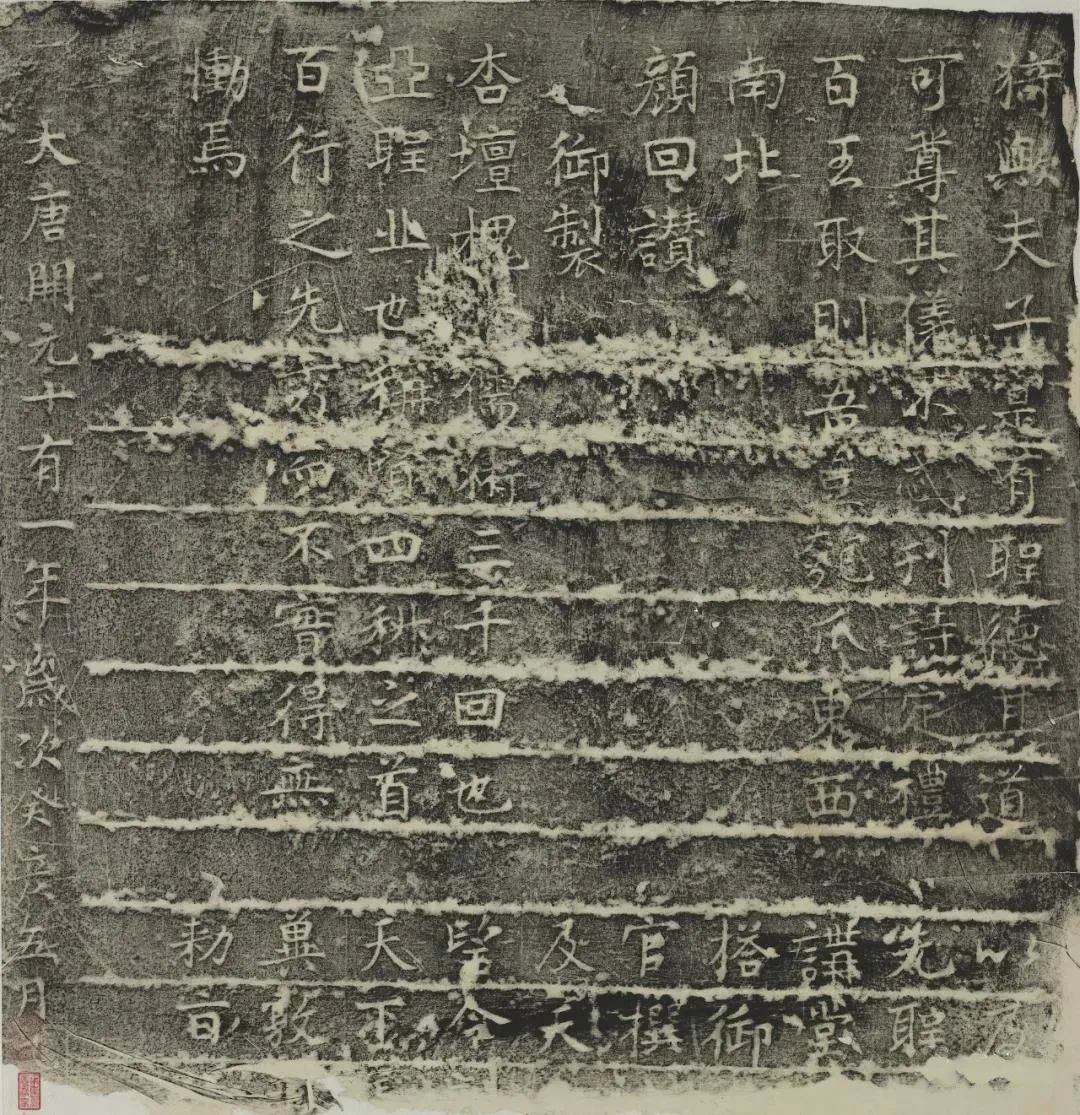 猗輿夫子是有聖德其道
可尊其儀不忒刊詩定禮
百王取則吾豈匏瓜東西
南北
顏回讚
御製
杏壇槐儒術三千回也
亞聖丘也稱賢四科之首
百行之先秀而不實得無
慟焉
以及
先聖
講堂
搭御
官撰
及天
望令
天
冀敦
勑旨
大唐開元十有一年歲次癸亥五月